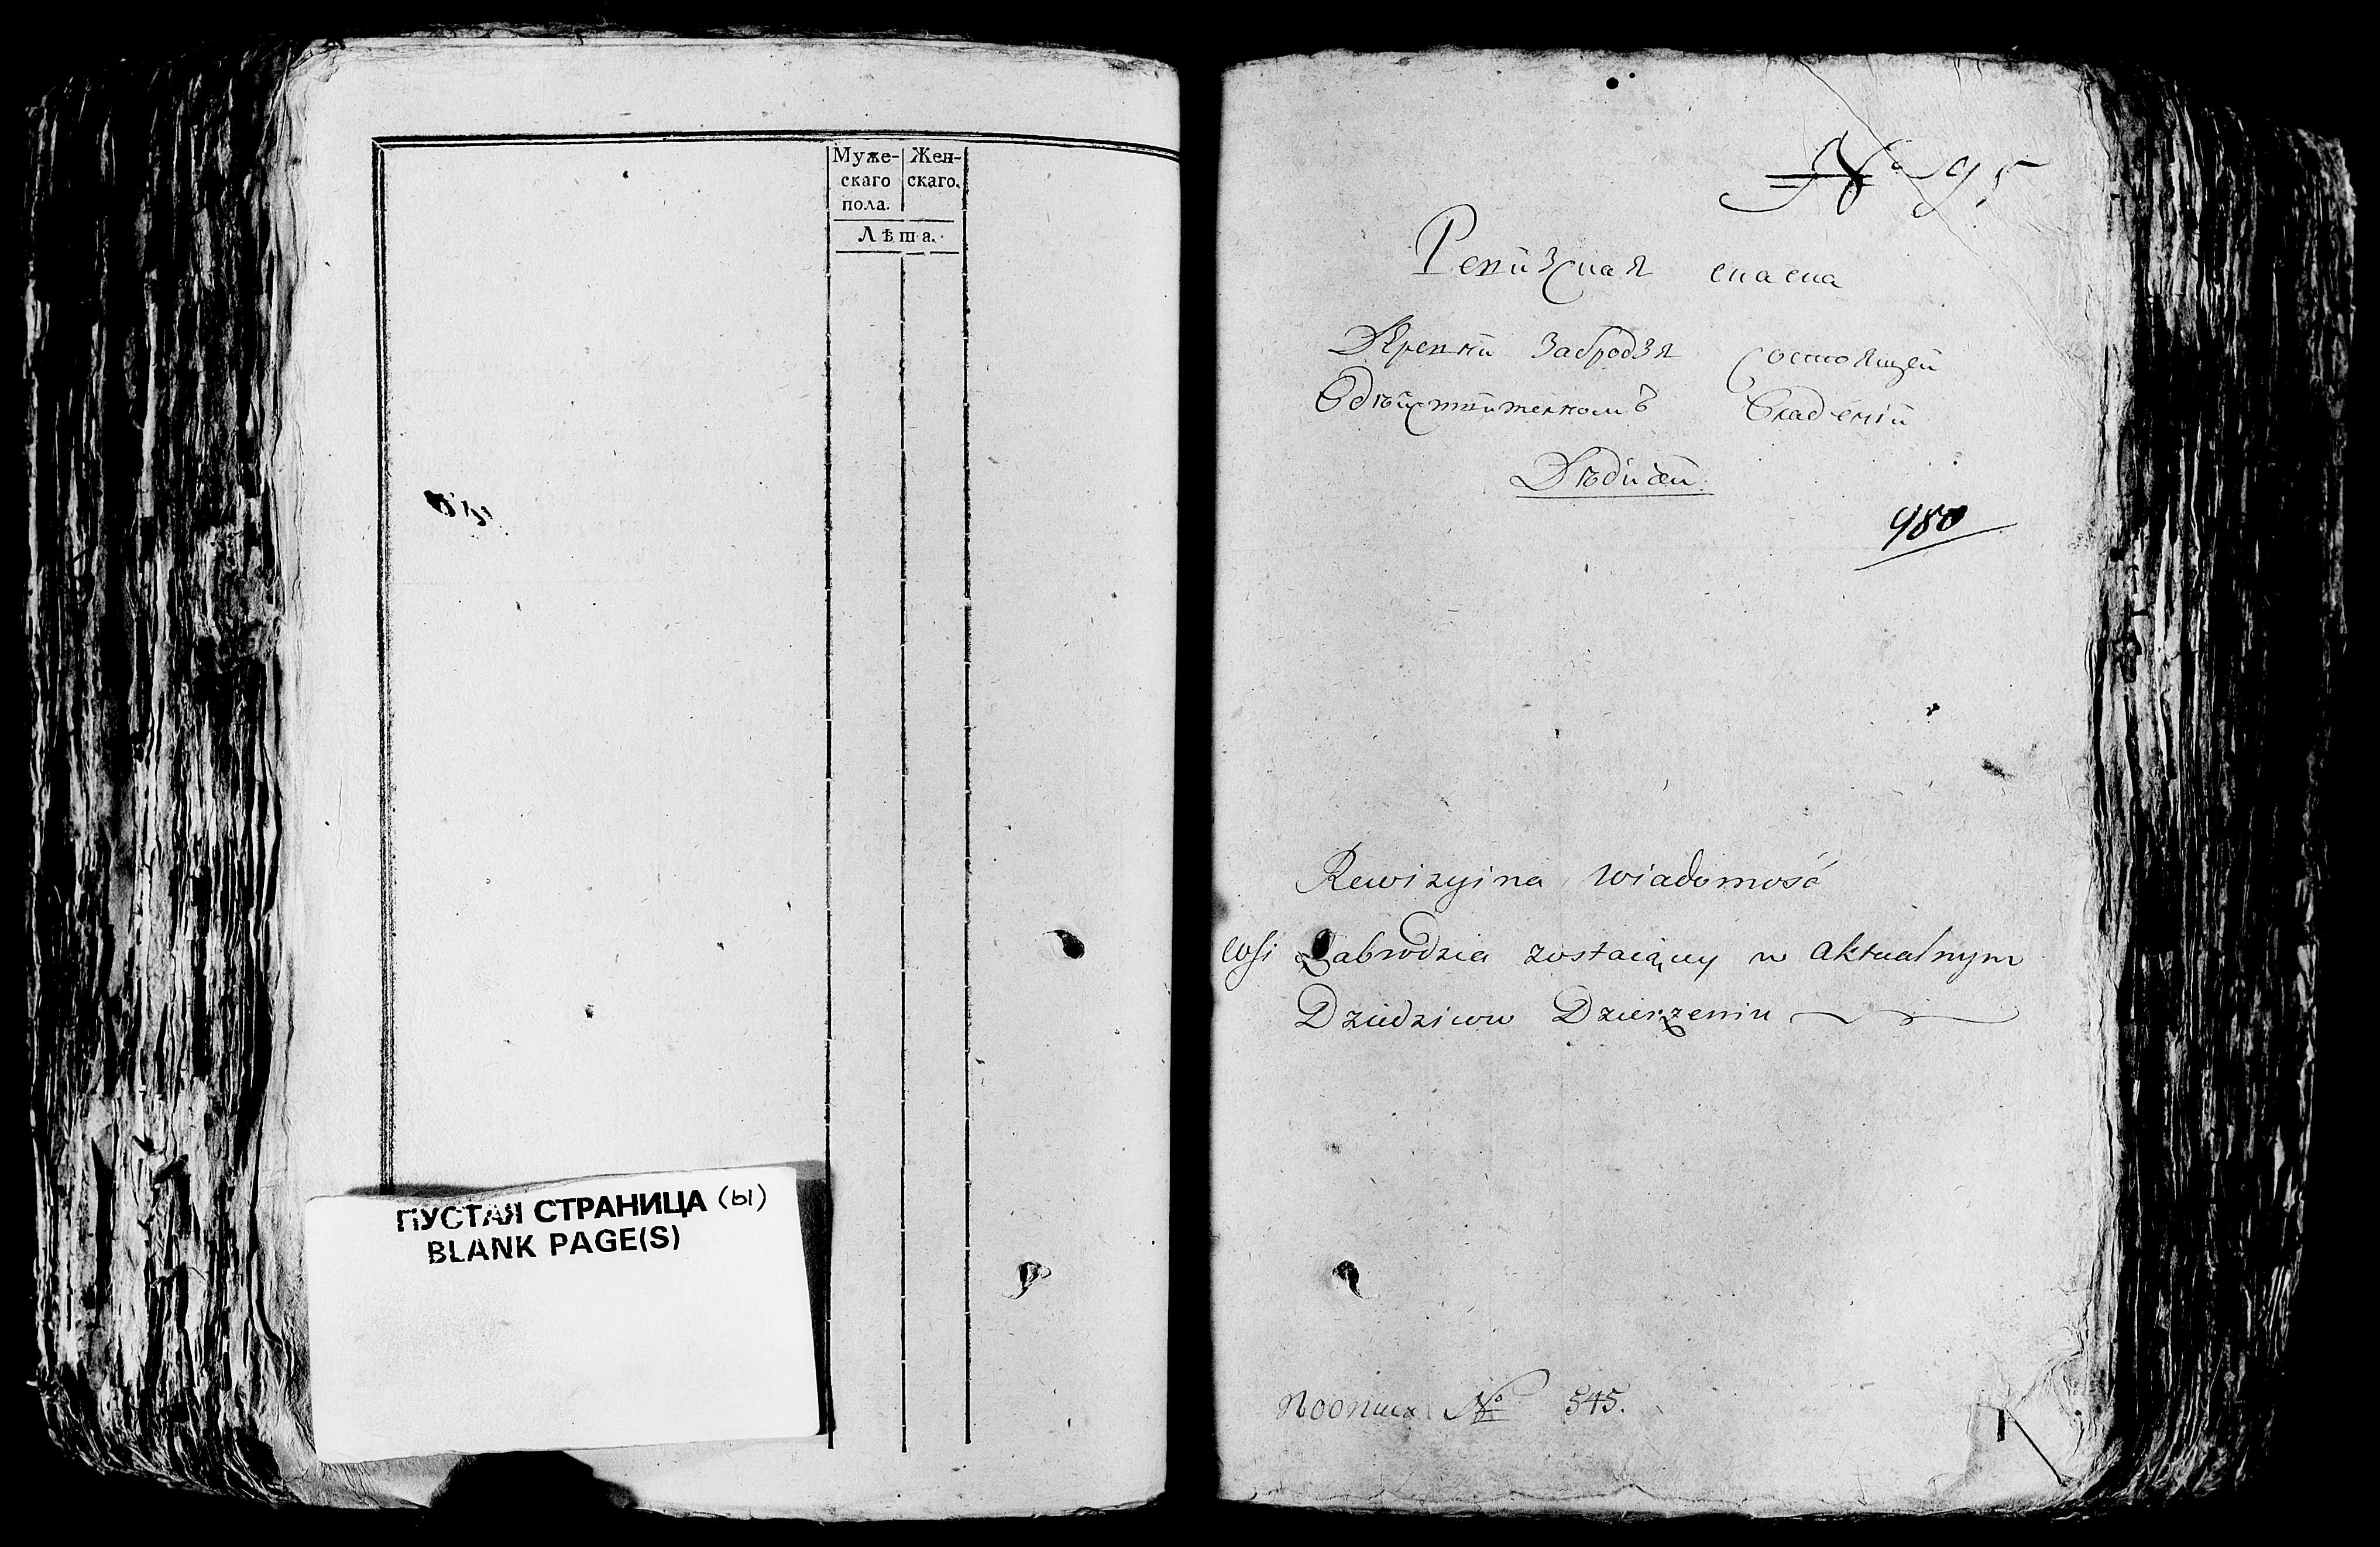 Муже- Жен-
скаго скаго.
пола.
Лѣта.
ПУСТАЯ СТРАНИЦА (Ы)
BLANK PAGE(S)
№ 95
Ревизская скаска
Деревни Забродзя состоящей
Вдѣйствителномъ Владении
Дѣдичей.
980
Rewizyina Wiadomość
wsi Zabrodzia zostaiący w Aktualnym
Dziedzicow Dzierżeniu
Поописи № 545.